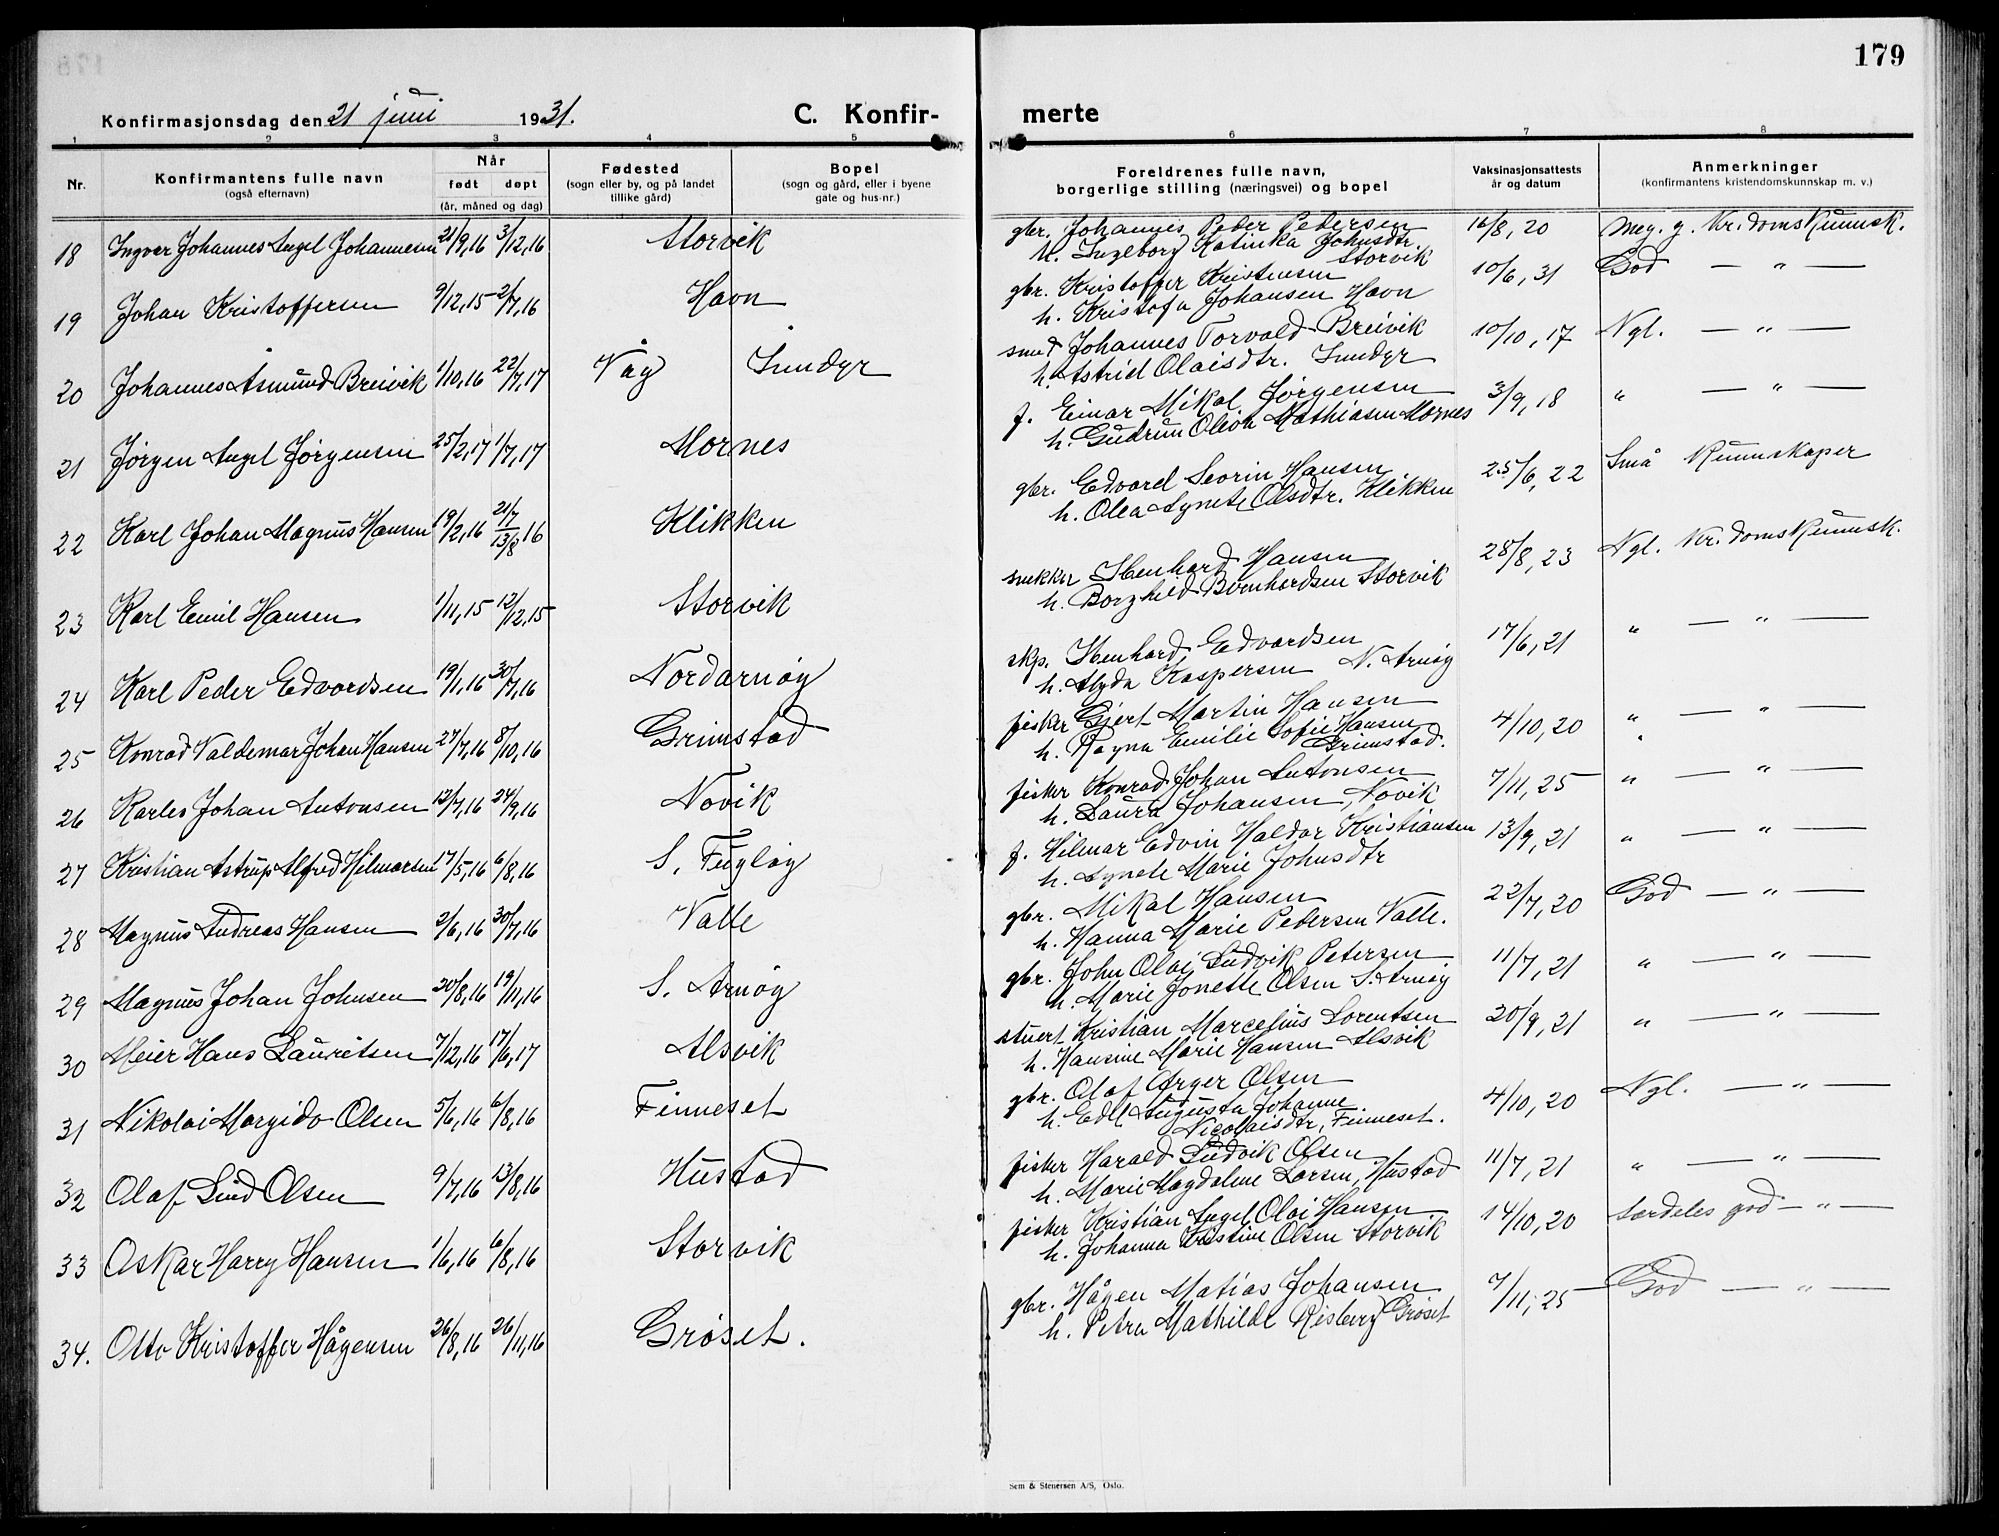 179
Konfirmasjonsdag den 21 juni 1931.
C. Konfir- merte
1 2 3 4 5 6 7 8
Nr. Konfirmantens fulle navn (også efternavn) Når født døpt (år, måned og dag) Fødested (sogn eller by, og på landet tillike gård) Bopel (sogn og gård, eller i byene gate og hus-nr.) Foreldrenes fulle navn, borgerlige stilling (næringsvei) og bopel Vaksinasjonsattests år og datum Anmerkninger (konfirmantens kristendomskunnskap m. v.)
18 Ingvar Johannes Angel Johannesen 21/9,16 3/12,16 Storvik gbr. Johannes Peder Pedersen 16/8,20 Meg. g. Kr.domskunnsk.
h. Ingeborg Katinka Johnsdtr. Storvik
19 Johan Kristoffersen 9/12,15 2/7,16 Havn gbr. Kristoffer Kristensen 10/6,31 God — " —
h. Kristofa Johansen Havn
20 Johannes Asmund Breivik 1/10,16 22/7,17 Våg Sundyr smed Johannes Torvald Breivik 10/10,17 Ngl. — " —
h. Astrid Olaisdtr. Sundyr
21 Jørgen Angel Jørgensen 25/2,17 1/7,17 Mornes f. Einar Mikal Jørgensen 3/9,18 " — " —
h. Gudrun Oleva Mathiasen Mornes
22 Karl Johan Magnus Hansen 19/2,16 21/7 13/8,16 Klikken gbr. Edvard Seorin Hansen 25/6,22 Små kunnskaper
h. Olea Agnete Olsdtr. Klikken
23 Karl Emil Hansen 1/11,15 12/12,15 Storvik snekker Ibenhard Hansen 28/8,23 Ngl. Kr.domskunnsk.
h. Borghild Bernhardsen Storvik
24 Karl Peder Edvardsen 19/1,16 30/7,16 Nordarnøy skp. Ibenhard Edvardsen 17/6,21 " — " —
h. Alyda Kaspersen N. Arnøy
25 Konrad Valdemar Johan Hansen 27/7,16 8/10,16 Grimstad fisker Gjert Martin Hansen 4/10,20 " — " —
h. Ragna Emilie Sofie Hansen Grimstad.
26 Karles Johan Antonsen 12/7,16 24/9,16 Novik fisker Konrad Johan Antonsen 7/11,25 " — " —
h. Laura Johansen, Novik
27 Kristian Astrup Alfred Hilmarsen 17/5,16 6/8,16 S. Fugløy f. Hilmar Edvin Haldor Kristiansen 13/9,21 " — " —
h. Agnete Marie Johnsdtr
28 Magnus Andreas Hansen 2/6,16 30/7,16 Valle gbr. Mikal Hansen 22/7,20 God — " —
h. Hanna Marie Pedersen Valle.
29 Magnus Johan Johnsen 20/8,16 19/11,16 S. Arnøy gbr. John Olai Ludvik Petersen 11/7,21 " — " —
h. Marie Jonette Olsen S. Arnøy
30 Meier Hans Lauritsen 7/12,16 17/6,17 Alsvik stuert Kristian Marcelius Lorentsen 20/9,21 " — " —
h. Hansine Marie Hansen Alsvik
31 Nikolai Margido Olsen 5/6,16 6/8,16 Finneset gbr. Olaf Ørger Olsen 4/10,20 Ngl. — " —
h. Edel Augusta Johanne Nicolaisdtr, Finneset.
32 Olaf Lind Olsen 9/7,16 13/8,16 Hustad fisker Harald Ludvik Olsen 11/7,21 " — " —
h. Marie Magdalene Larsen, Hustad
33 Oskar Harry Hansen 1/6,16 6/8,16 Storvik fisker Kristian Angel Olai Hansen 14/10,20 særdeles god — " —
h. Johanna Kristine Olsen Storvik
34. Otto Kristoffer Hågensen 26/8,16 26/11,16 Grøset. gbr. Hågen Matias Johansen 7/11,25 God — " —
h. Petra Mathilde Risberg Grøset
Sem & Stenersen A/S, Oslo.